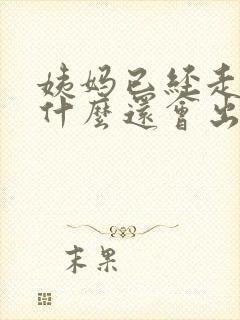 姨妈已经走
什麼還會出
末果